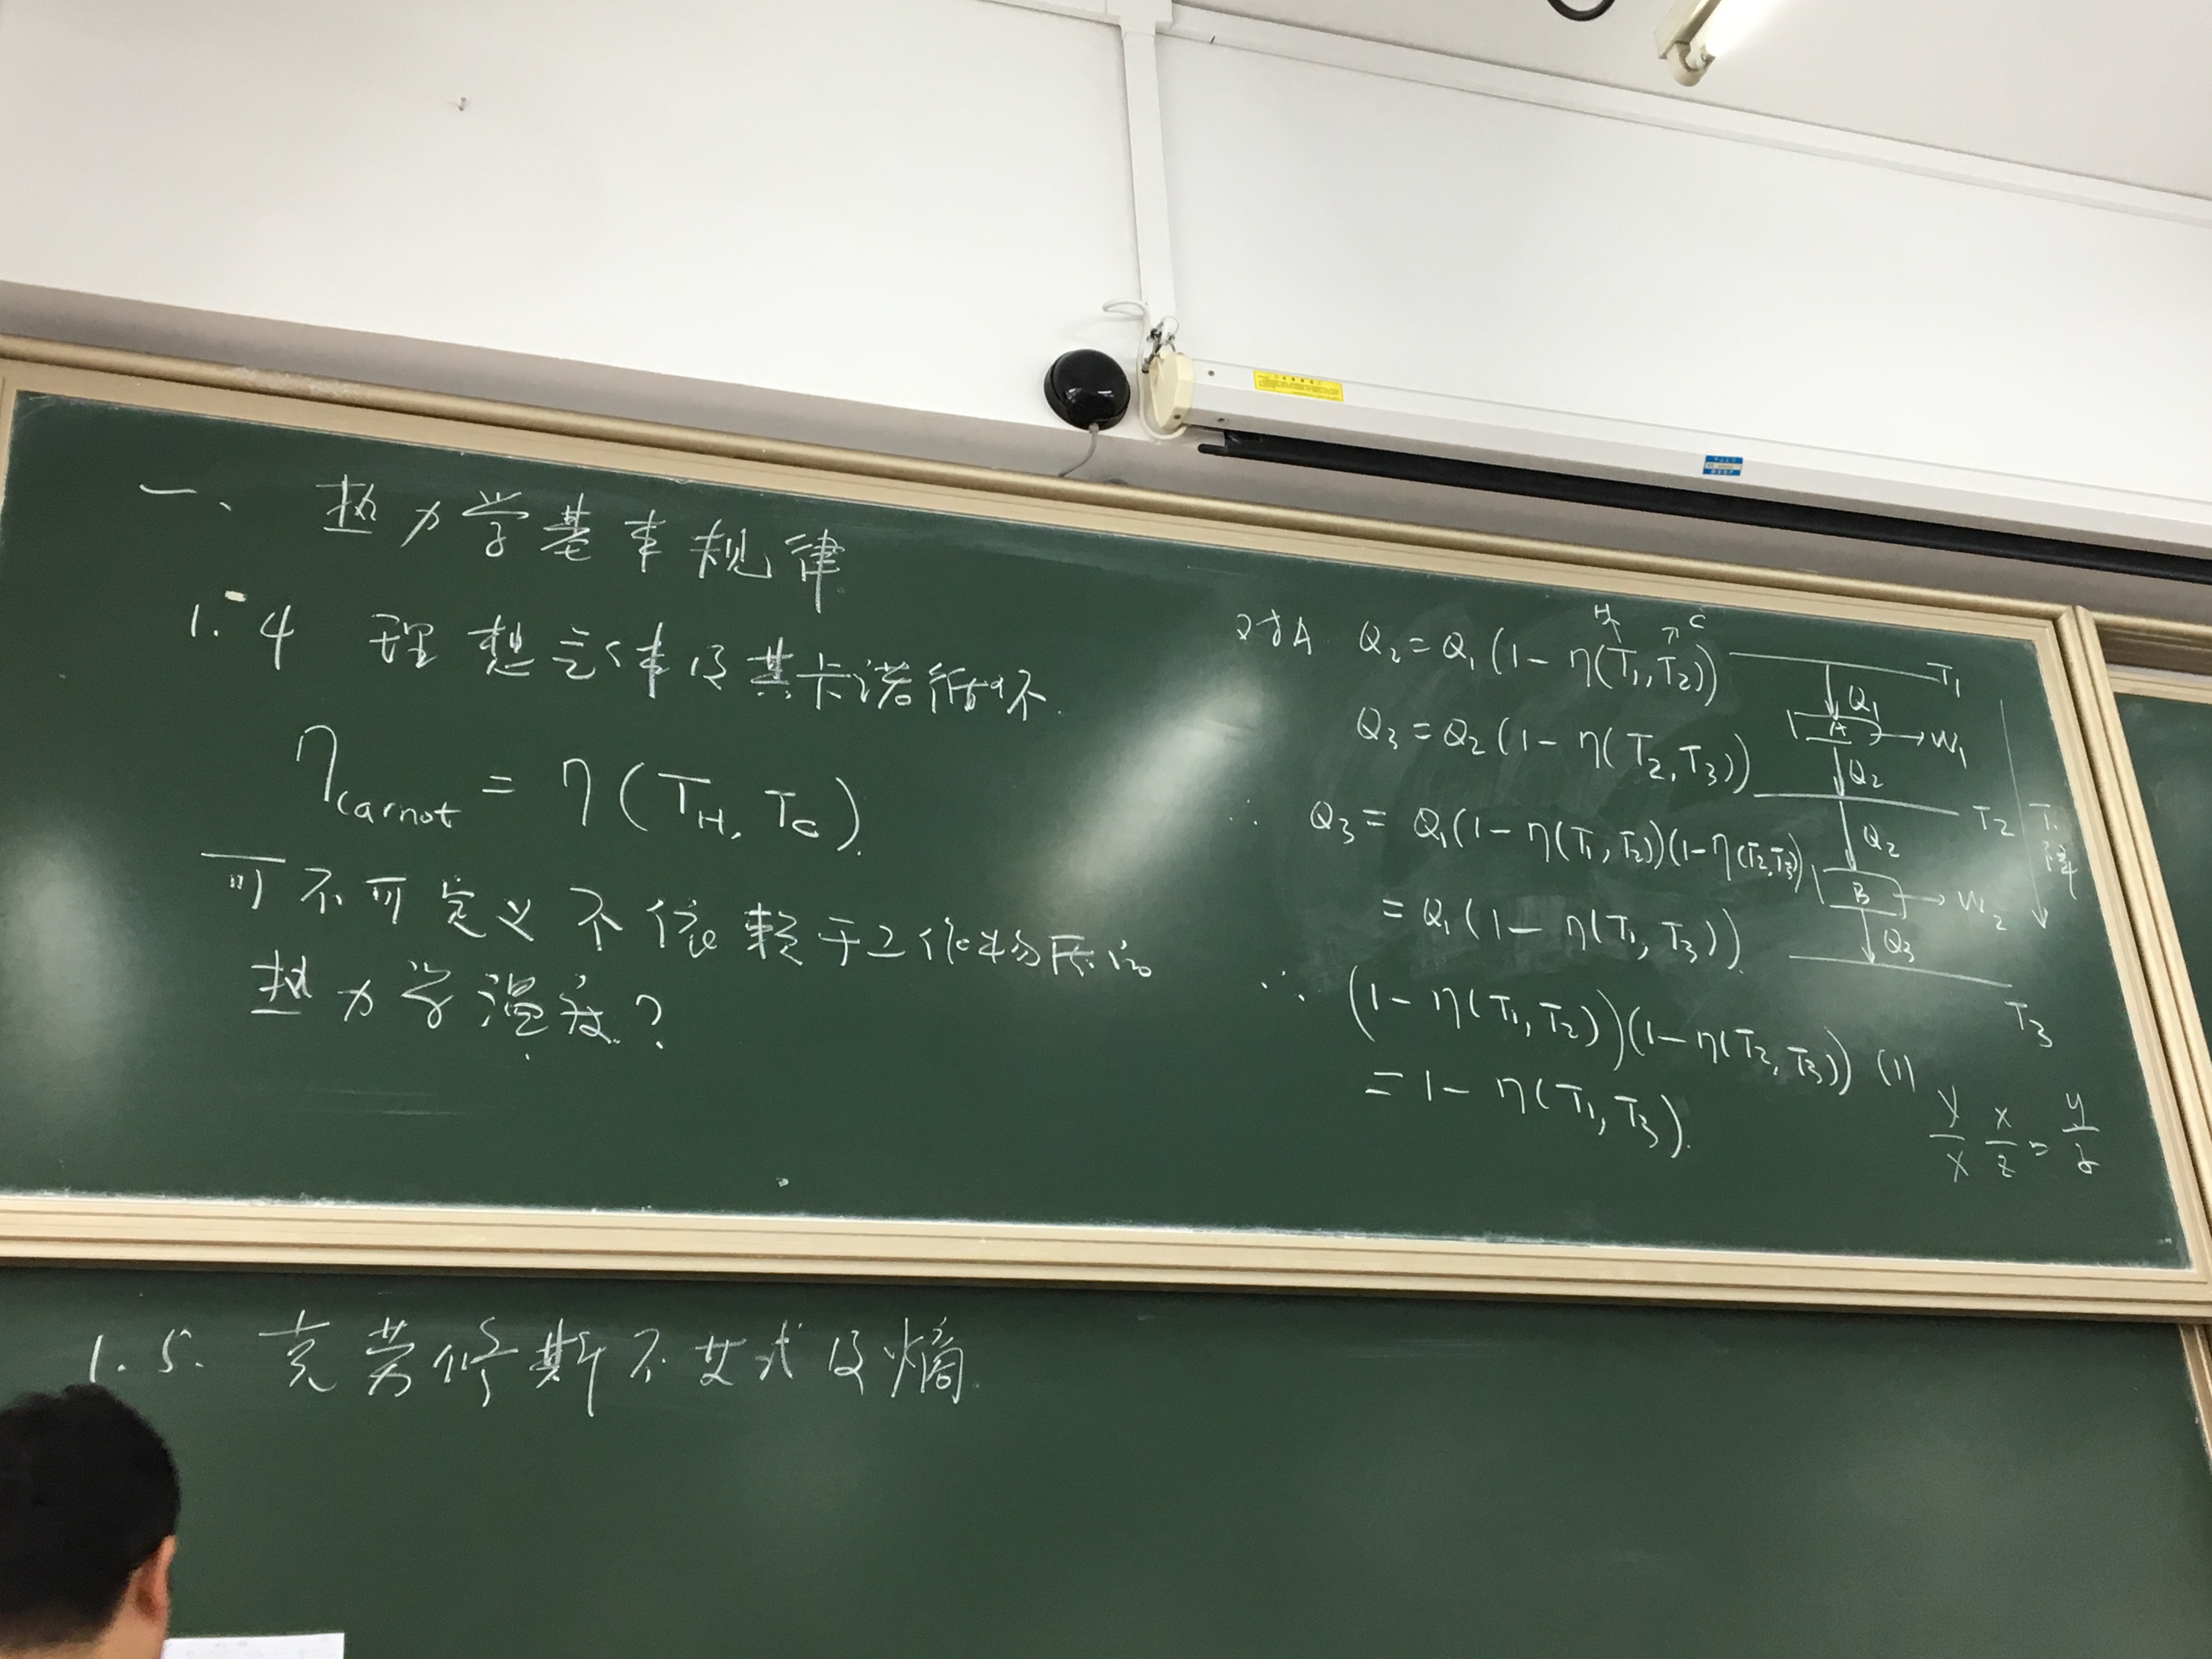 一、热力学基本规律
1.4 理想气体及其卡诺循环.
η_carnot = η(T_H, T_C).
可不可定义不依赖于工作物质的
热力学温度?
H C
对A Q₂ = Q₁(1 - η(T₁, T₂))
Q₃ = Q₂(1 - η(T₂, T₃))
∴ Q₃ = Q₁(1 - η(T₁, T₂))(1 - η(T₂, T₃))
= Q₁(1 - η(T₁, T₃)).
∴ (1 - η(T₁, T₂))(1 - η(T₂, T₃)) (1)
= 1 - η(T₁, T₃).
T₁
Q₁
A W₁
Q₂
T₂
Q₂
B W₂
Q₃
T₃
T降
y/x x/z = y/z
1.5. 克劳修斯不等式及熵.